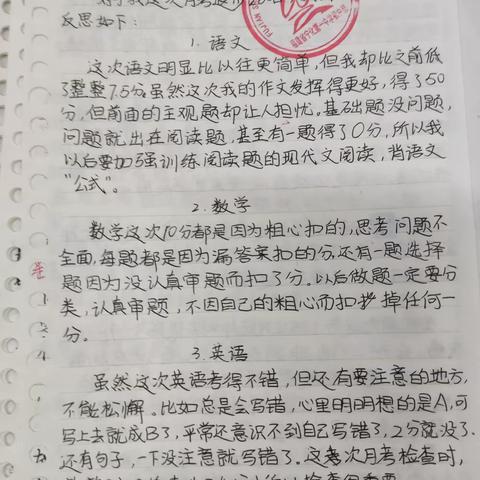 反思如下:
1. 语文
这次语文明显比以往更简单,但我却比之前低
了整整7.5分。虽然这次我的作文发挥得更好,得了50
分,但前面的主观题却让人担忧。基础题没问题,
问题就出在阅读题,甚至有一题得了0分,所以我
以后要加强训练阅读题的现代文阅读,背语文
“公式”。
2. 数学
数学这次10分都是因为粗心扣的,思考问题不
全面,每题都是因为漏答案扣的分,还有一题选择
题因为没认真审题而扣了分。以后做题一定要分
类,认真审题,不因自己的粗心而扣掉任何一
分。
3. 英语
虽然这次英语考得不错,但还有要注意的地方,
不能松懈。比如总是会写错,心里明明想的是A,可
写上去就成B了,平常还意识不到自己写错了,2分就没了.
还有句子,一下没注意就写错了。这次月考检查时,